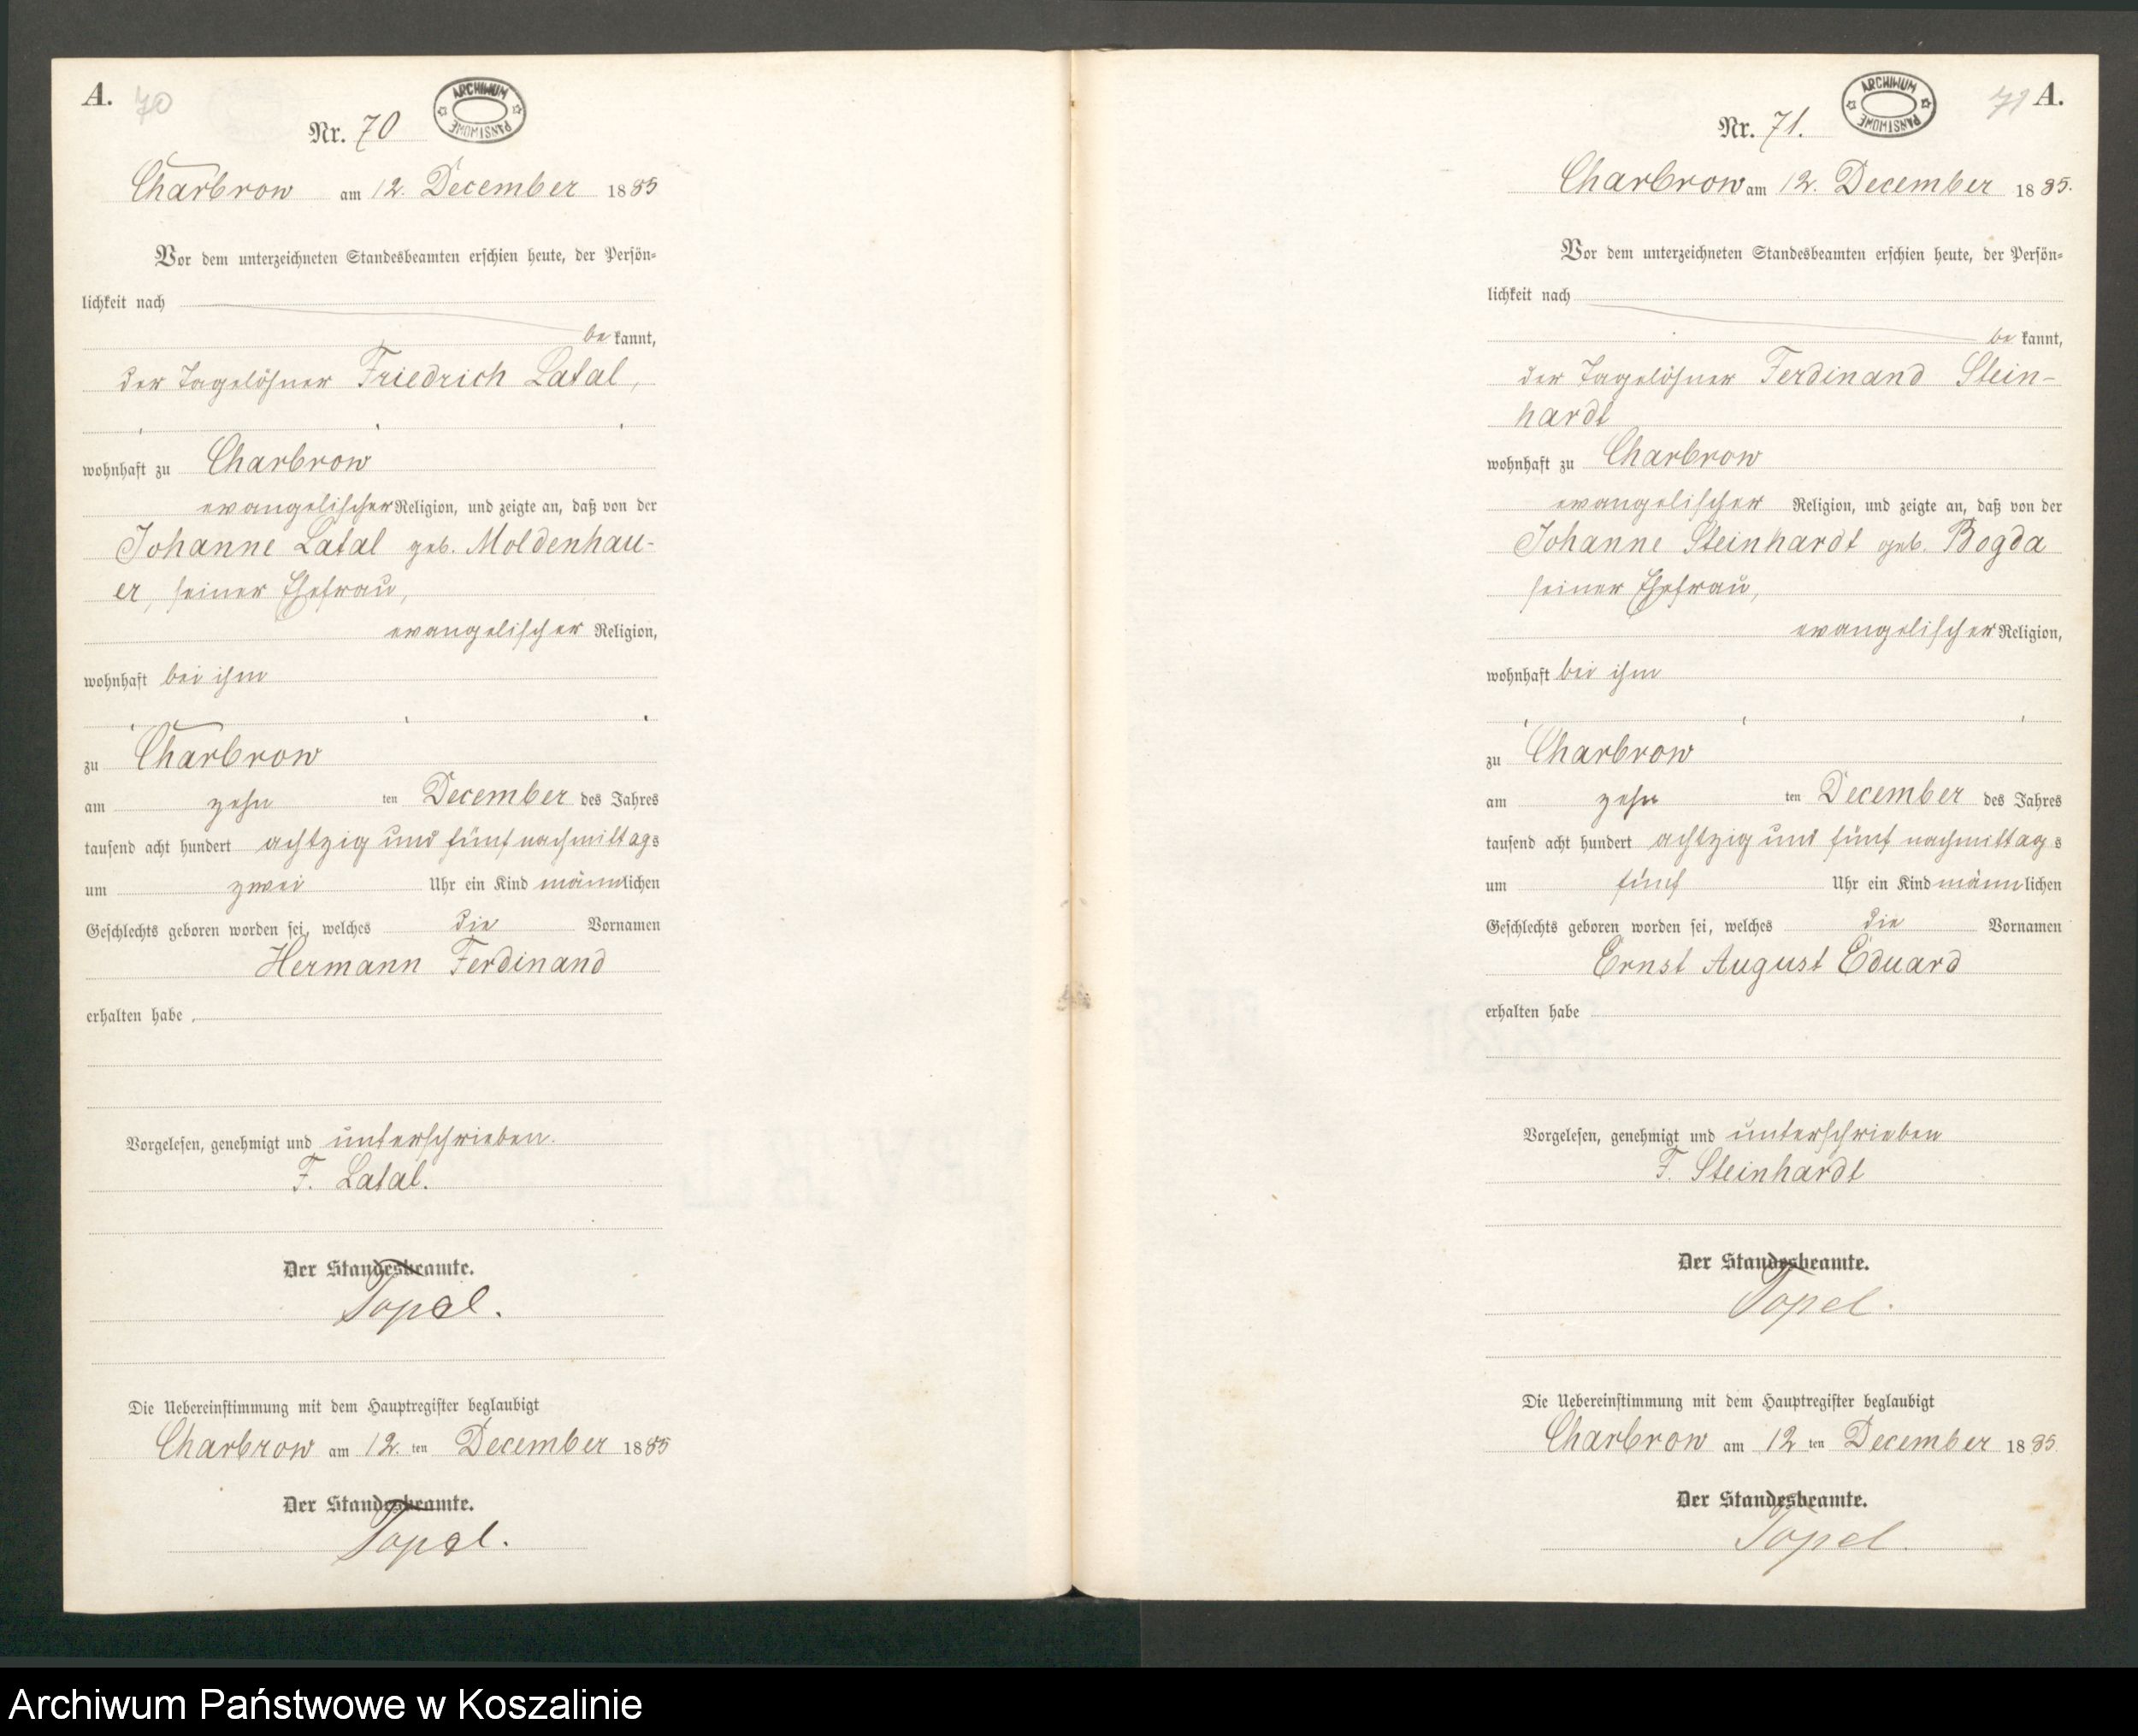 A. 70
ARCHIWUM PAŃSTWOWE
Nr. 70
Charbrow am 12. December 1885
Vor dem unterzeichneten Standesbeamten erschien heute, der Persön=
lichkeit nach
be kannt,
der Tagelöhner Friedrich Latal,
wohnhaft zu Charbrow
evangelischer Religion, und zeigte an, daß von der
Johanne Latal geb. Moldenhau-
er, seiner Ehefrau,
evangelischer Religion,
wohnhaft bei ihm
zu Charbrow
am zehn ten December des Jahres
tausend acht hundert achtzig und fünf nachmittags
um zwei Uhr ein Kind männlichen
Geschlechts geboren worden sei, welches die Vornamen
Hermann Ferdinand
erhalten habe
Vorgelesen, genehmigt und unterschrieben.
F. Latal.
Der Standesbeamte.
Topel.
Die Uebereinstimmung mit dem Hauptregister beglaubigt
Charbrow am 12. ten December 1885
Der Standesbeamte.
Topel.
71 A.
ARCHIWUM PAŃSTWOWE
Nr. 71.
Charbrow am 12. December 1885.
Vor dem unterzeichneten Standesbeamten erschien heute, der Persön=
lichkeit nach
be kannt,
der Tagelöhner Ferdinand Stein-
hardt
wohnhaft zu Charbrow
evangelischer Religion, und zeigte an, daß von der
Johanne Steinhardt geb. Bogda
seiner Ehefrau,
evangelischer Religion,
wohnhaft bei ihm
zu Charbrow
am zehn ten December des Jahres
tausend acht hundert achtzig und fünf nachmittags
um fünf Uhr ein Kind männlichen
Geschlechts geboren worden sei, welches die Vornamen
Ernst August Eduard
erhalten habe
Vorgelesen, genehmigt und unterschrieben
F. Steinhardt
Der Standesbeamte.
Topel.
Die Uebereinstimmung mit dem Hauptregister beglaubigt
Charbrow am 12 ten December 1885.
Der Standesbeamte.
Topel.
Archiwum Państwowe w Koszalinie